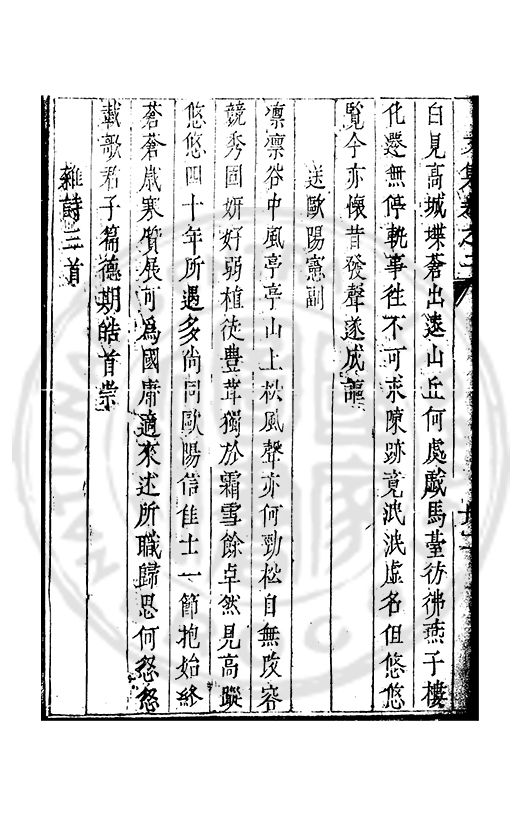 文集卷之二
白見高城堞蒼出遠山丘何處戲馬臺彷彿燕子樓
化遷無停軌事徃不可求陳跡竟泯泯虛名但悠悠
覽今亦懷昔發聲遂成謳
送歐陽憲副
凛凛谷中風亭亭山上松風聲亦何勁松自無改容
競秀固妍好弱植徒豊茸獨於霜雪餘卓然見高蹤
悠悠四十年所遇多尚同歐陽信佳士一節抱始終
蒼蒼嵗寒質展可為國庸適來述所職歸思何怱怱
載歌君子篇德期皓首崇
雜詩三首